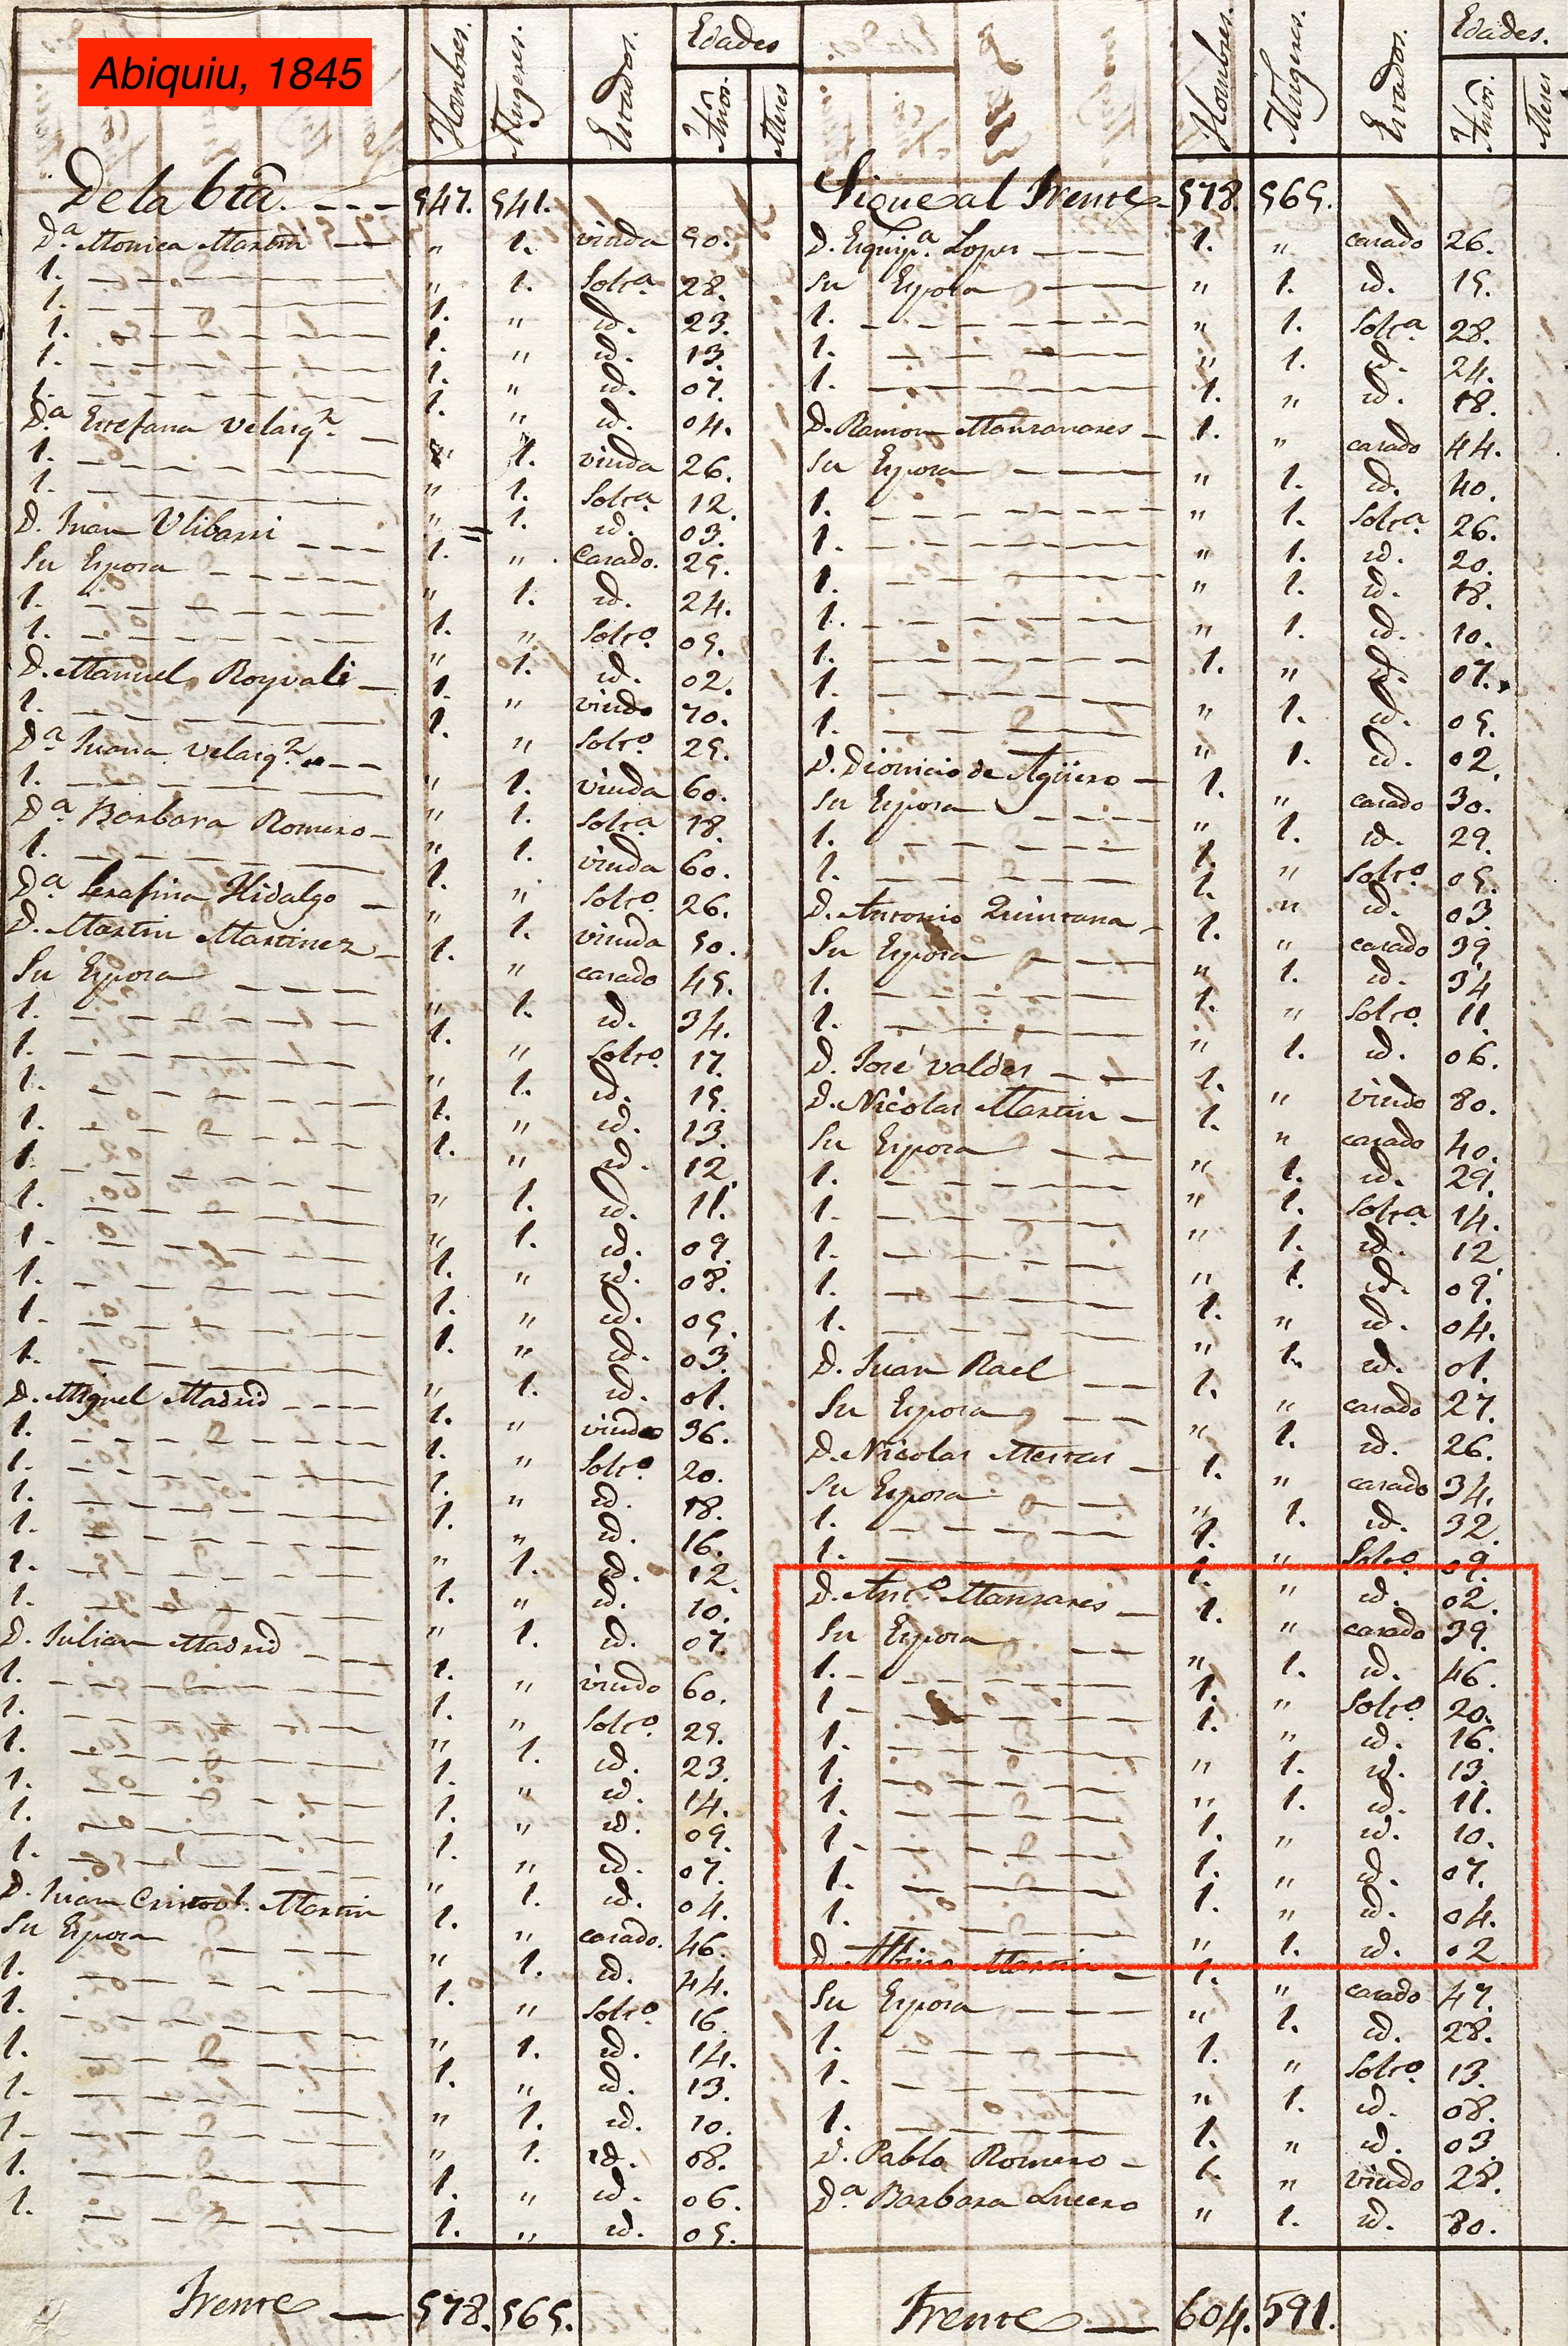 Abiquiu, 1845
Hombres. Mugeres. Estados. Edades Años. Meses
De la bta. 547. 541.
D.a Monica Martin " 1. viuda 50.
1. " 1. Solt.a 28.
1. 1. " id. 23.
1. 1. " id. 13.
1. 1. " id. 07.
1. 1. " id. 04.
D.a Estefana Velasq.z " 1. viuda 26.
1. " 1. Solt.a 12.
1. " 1. id. 03.
D. Juan Ulibarri 1. " Casado. 25.
Su Esposa " 1. id. 24.
1. 1. " Solt.o 05.
1. " 1. id. 02.
D. Manuel Royvali 1. " viudo 70.
1. 1. " Solt.o 25.
D.a Juana Velasq.z " 1. viuda 60.
1. " 1. Solt.a 18.
D.a Barbara Romero " 1. viuda 60.
1. 1. " Solt.o 26.
D.a Serafina Hidalgo " 1. viuda 50.
D. Martin Martinez 1. " casado 45.
Su Esposa " 1. id. 34.
1. 1. " Solt.o 17.
1. " 1. id. 15.
1. 1. " id. 13.
1. 1. " id. 12.
1. " 1. id. 11.
1. " 1. id. 09.
1. 1. " id. 08.
1. 1. " id. 05.
1. 1. " id. 03.
1. " 1. id. 01.
D. Miguel Madrid 1. " viudo 36.
1. 1. " Solt.o 20.
1. 1. " id. 18.
1. 1. " id. 16.
1. " 1. id. 12.
1. 1. " id. 10.
1. " 1. id. 07.
D. Julian Madrid 1. " viudo 60.
1. 1. " Solt.o 25.
1. " 1. id. 23.
1. 1. " id. 14.
1. 1. " id. 09.
1. 1. " id. 07.
1. " 1. id. 04.
D. Juan Cristobl. Martin 1. " casado. 46.
Su Esposa " 1. id. 44.
1. 1. " Solt.o 16.
1. " 1. id. 14.
1. 1. " id. 13.
1. " 1. id. 10.
1. " 1. id. 08.
1. 1. " id. 06.
1. 1. " id. 05.
Frente 578. 565.
Hombres. Mugeres. Estados. Edades. Años. Meses
Sigue al Frente 578. 565.
D. Esquip.a Lopes 1. " casado 26.
Su Esposa " 1. id. 15.
1. " 1. Solt.a 28.
1. " 1. id. 24.
1. 1. " id. 18.
D. Ramon Manzanares 1. " casado 44.
Su Esposa " 1. id. 40.
1. " 1. Solt.a 26.
1. " 1. id. 20.
1. " 1. id. 18.
1. " 1. id. 10.
1. 1. " id. 07.
1. " 1. id. 05.
1. " 1. id. 02.
D. Dionicio de Agüero 1. " casado 30.
Su Esposa " 1. id. 29.
1. 1. " Solt.o 05.
1. 1. " id. 03.
D. Antonio Quintana 1. " casado 39.
Su Esposa " 1. id. 34
1. 1. " Solt.o 11.
1. " 1. id. 06.
D. José Valdes 1. " viudo 80.
D. Nicolas Martin 1. " casado 40.
Su Esposa " 1. id. 29.
1. " 1. Solt.a 14.
1. " 1. id. 12
1. " 1. id. 09.
1. 1. " id. 04.
1. " 1. id. 01.
D. Juan Rael 1. " casado 27.
Su Esposa " 1. id. 26.
D. Nicolas Mestas 1. " casado 34.
Su Esposa " 1. id. 32.
1. 1. " Solt.o 09.
1. 1. " id. 02.
D. Ant.o Mansares 1. " casado 39.
Su Esposa " 1. id. 46.
1. 1. " Solt.o 20.
1. 1. " id. 16.
1. " 1. id. 13.
1. " 1. id. 11.
1. 1. " id. 10.
1. 1. " id. 07.
1. 1. " id. 04.
1. " 1. id. 02
D. Albino Martin 1. " casado 47.
Su Esposa " 1. id. 28.
1. 1. " Solt.o 13.
1. " 1. id. 08.
1. 1. " id. 03
D. Pablo Romero 1. " viudo 28.
D.a Barbara Lucero " 1. id. 80.
Frente 604. 591.